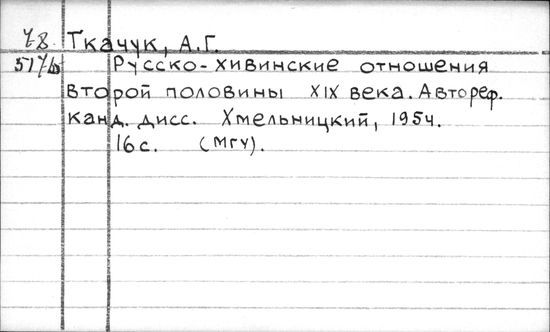 78 Ткачук, А.Г.
Русско-хивинские отношения
второй половины XIX века. Автореф.
канд. дисс. Хмельницкий, 1954.
16с. (МГУ).